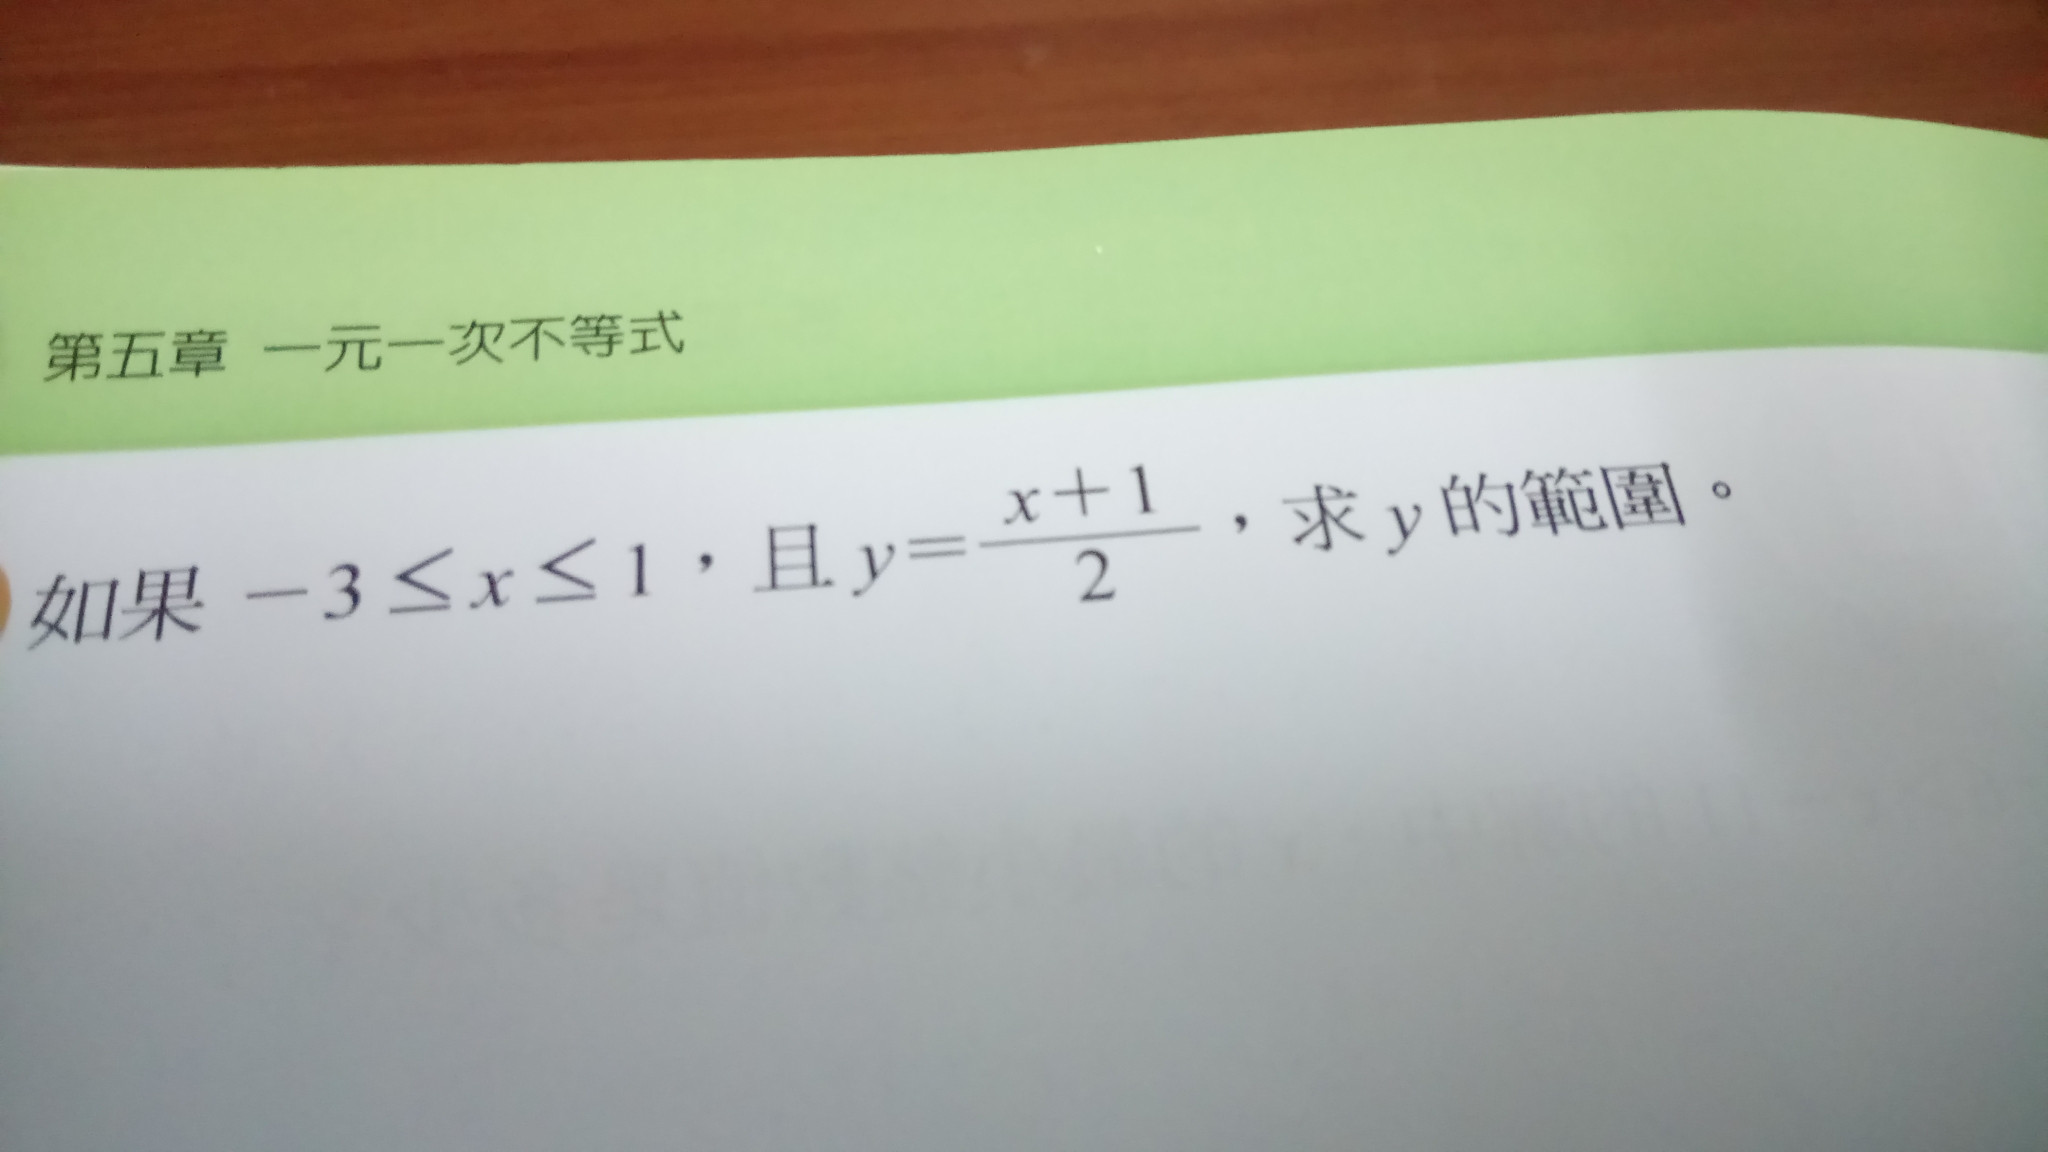 第五章 一元一次不等式
如果 －3≤x≤1，且 y=\frac{x+1}{2}，求 y 的範圍。